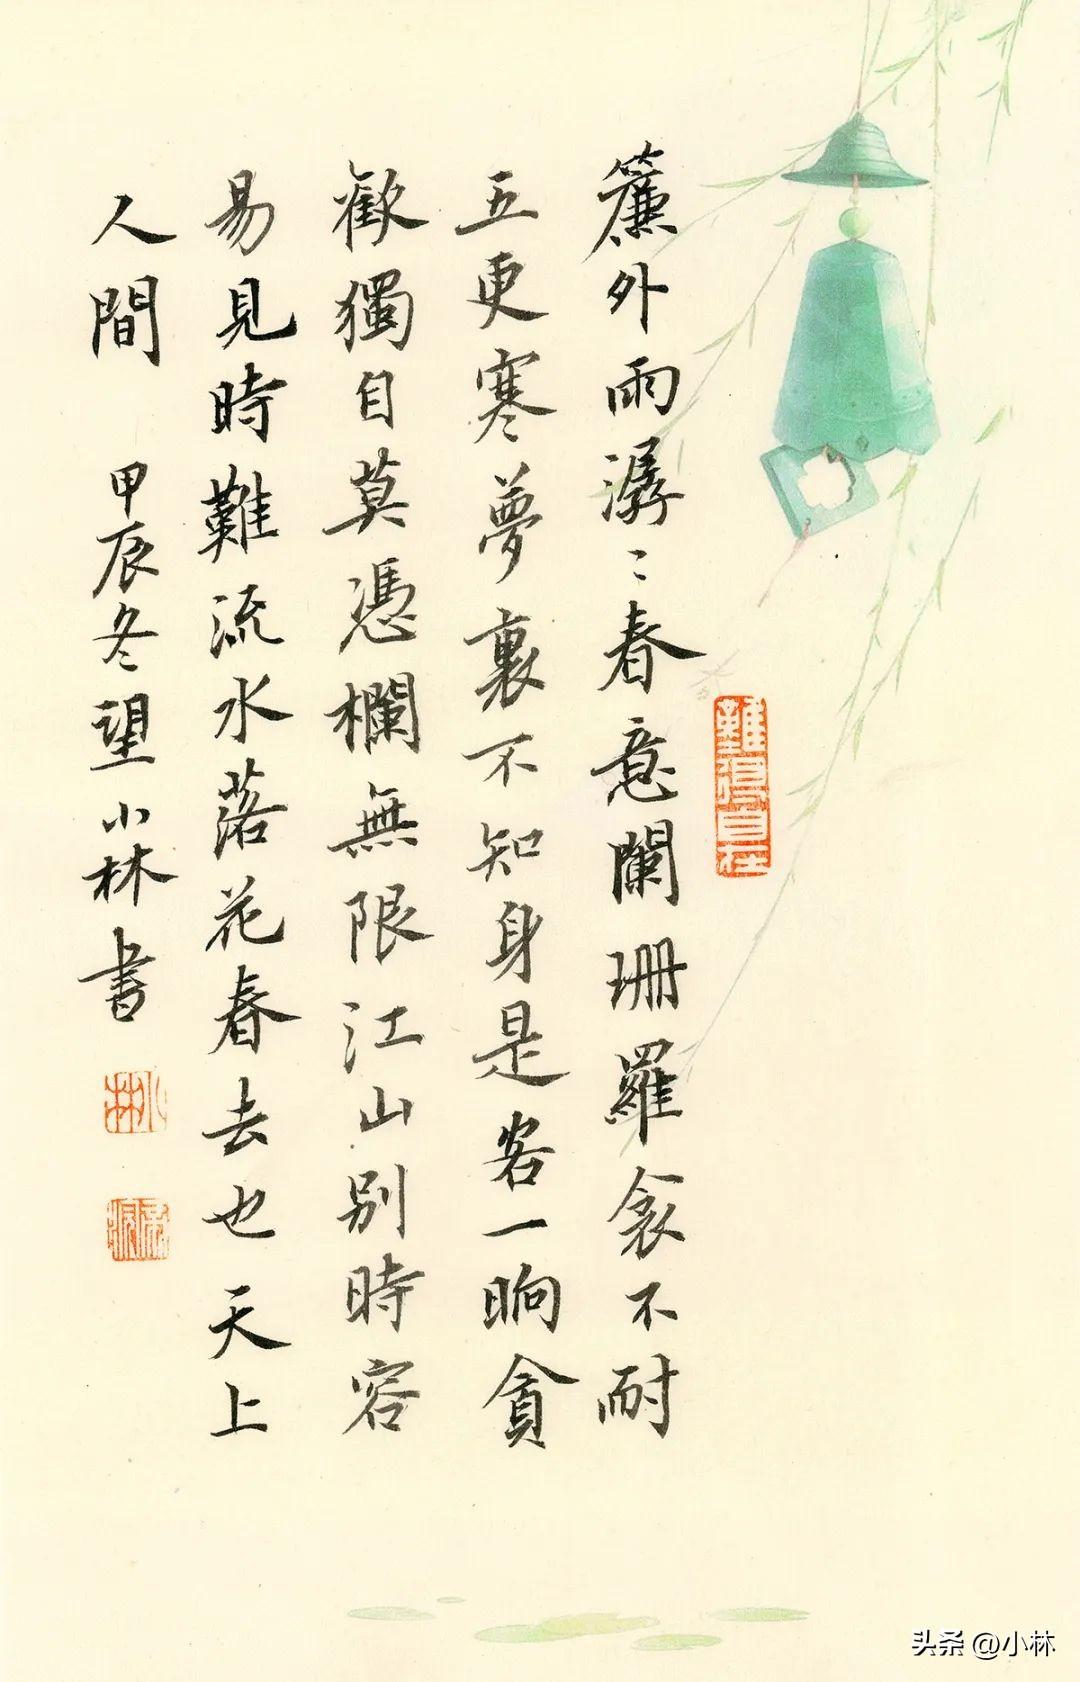 簾外雨潺〻春意闌珊羅衾不耐
五更寒夢裏不知身是客一晌貪
歡獨自莫憑欄無限江山別時容
易見時難流水落花春去也天上
人間 甲辰冬望小林書
難得自在
小林
头条 @小林